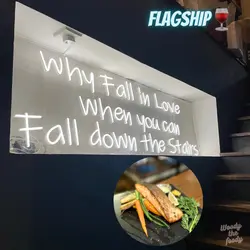 FLAGSHIP🍷
Why Fall in Love
When you can
Fall down the Stairs
Woody
the
foody